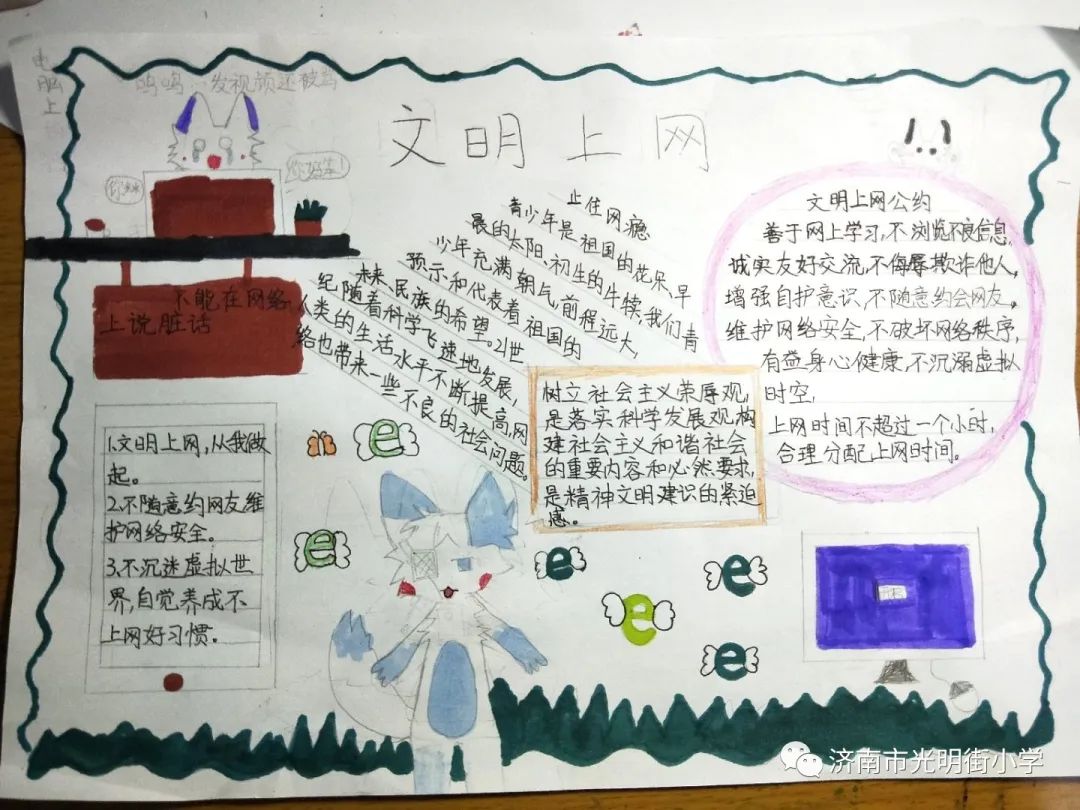 电脑上
呜呜…发视频还被骂
文明上网
你好笨!
不能在网络
上说脏话
止住网瘾
青少年是祖国的花朵、早
晨的太阳、初生的牛犊,我们青
少年充满朝气,前程远大,
预示和代表着祖国的
未来、民族的希望。21世
纪,随着科学飞速地发展,
人类的生活水平不断提高,网
络也带来一些不良的社会问题。
文明上网公约
善于网上学习,不浏览不良信息。
诚实友好交流,不侮辱欺诈他人。
增强自护意识,不随意约会网友。
维护网络安全,不破坏网络秩序,
有益身心健康,不沉溺虚拟
时空,
上网时间不超过一个小时,
合理分配上网时间。
树立社会主义荣辱观,
是落实科学发展观,构
建社会主义和谐社会
的重要内容和必然要求,
是精神文明建识的紧迫
感。
1.文明上网,从我做
起。
2.不随意约网友维
护网络安全。
3.不沉迷虚拟世
界,自觉养成不
上网好习惯。
e
e
e
e
e
e
济南市光明街小学